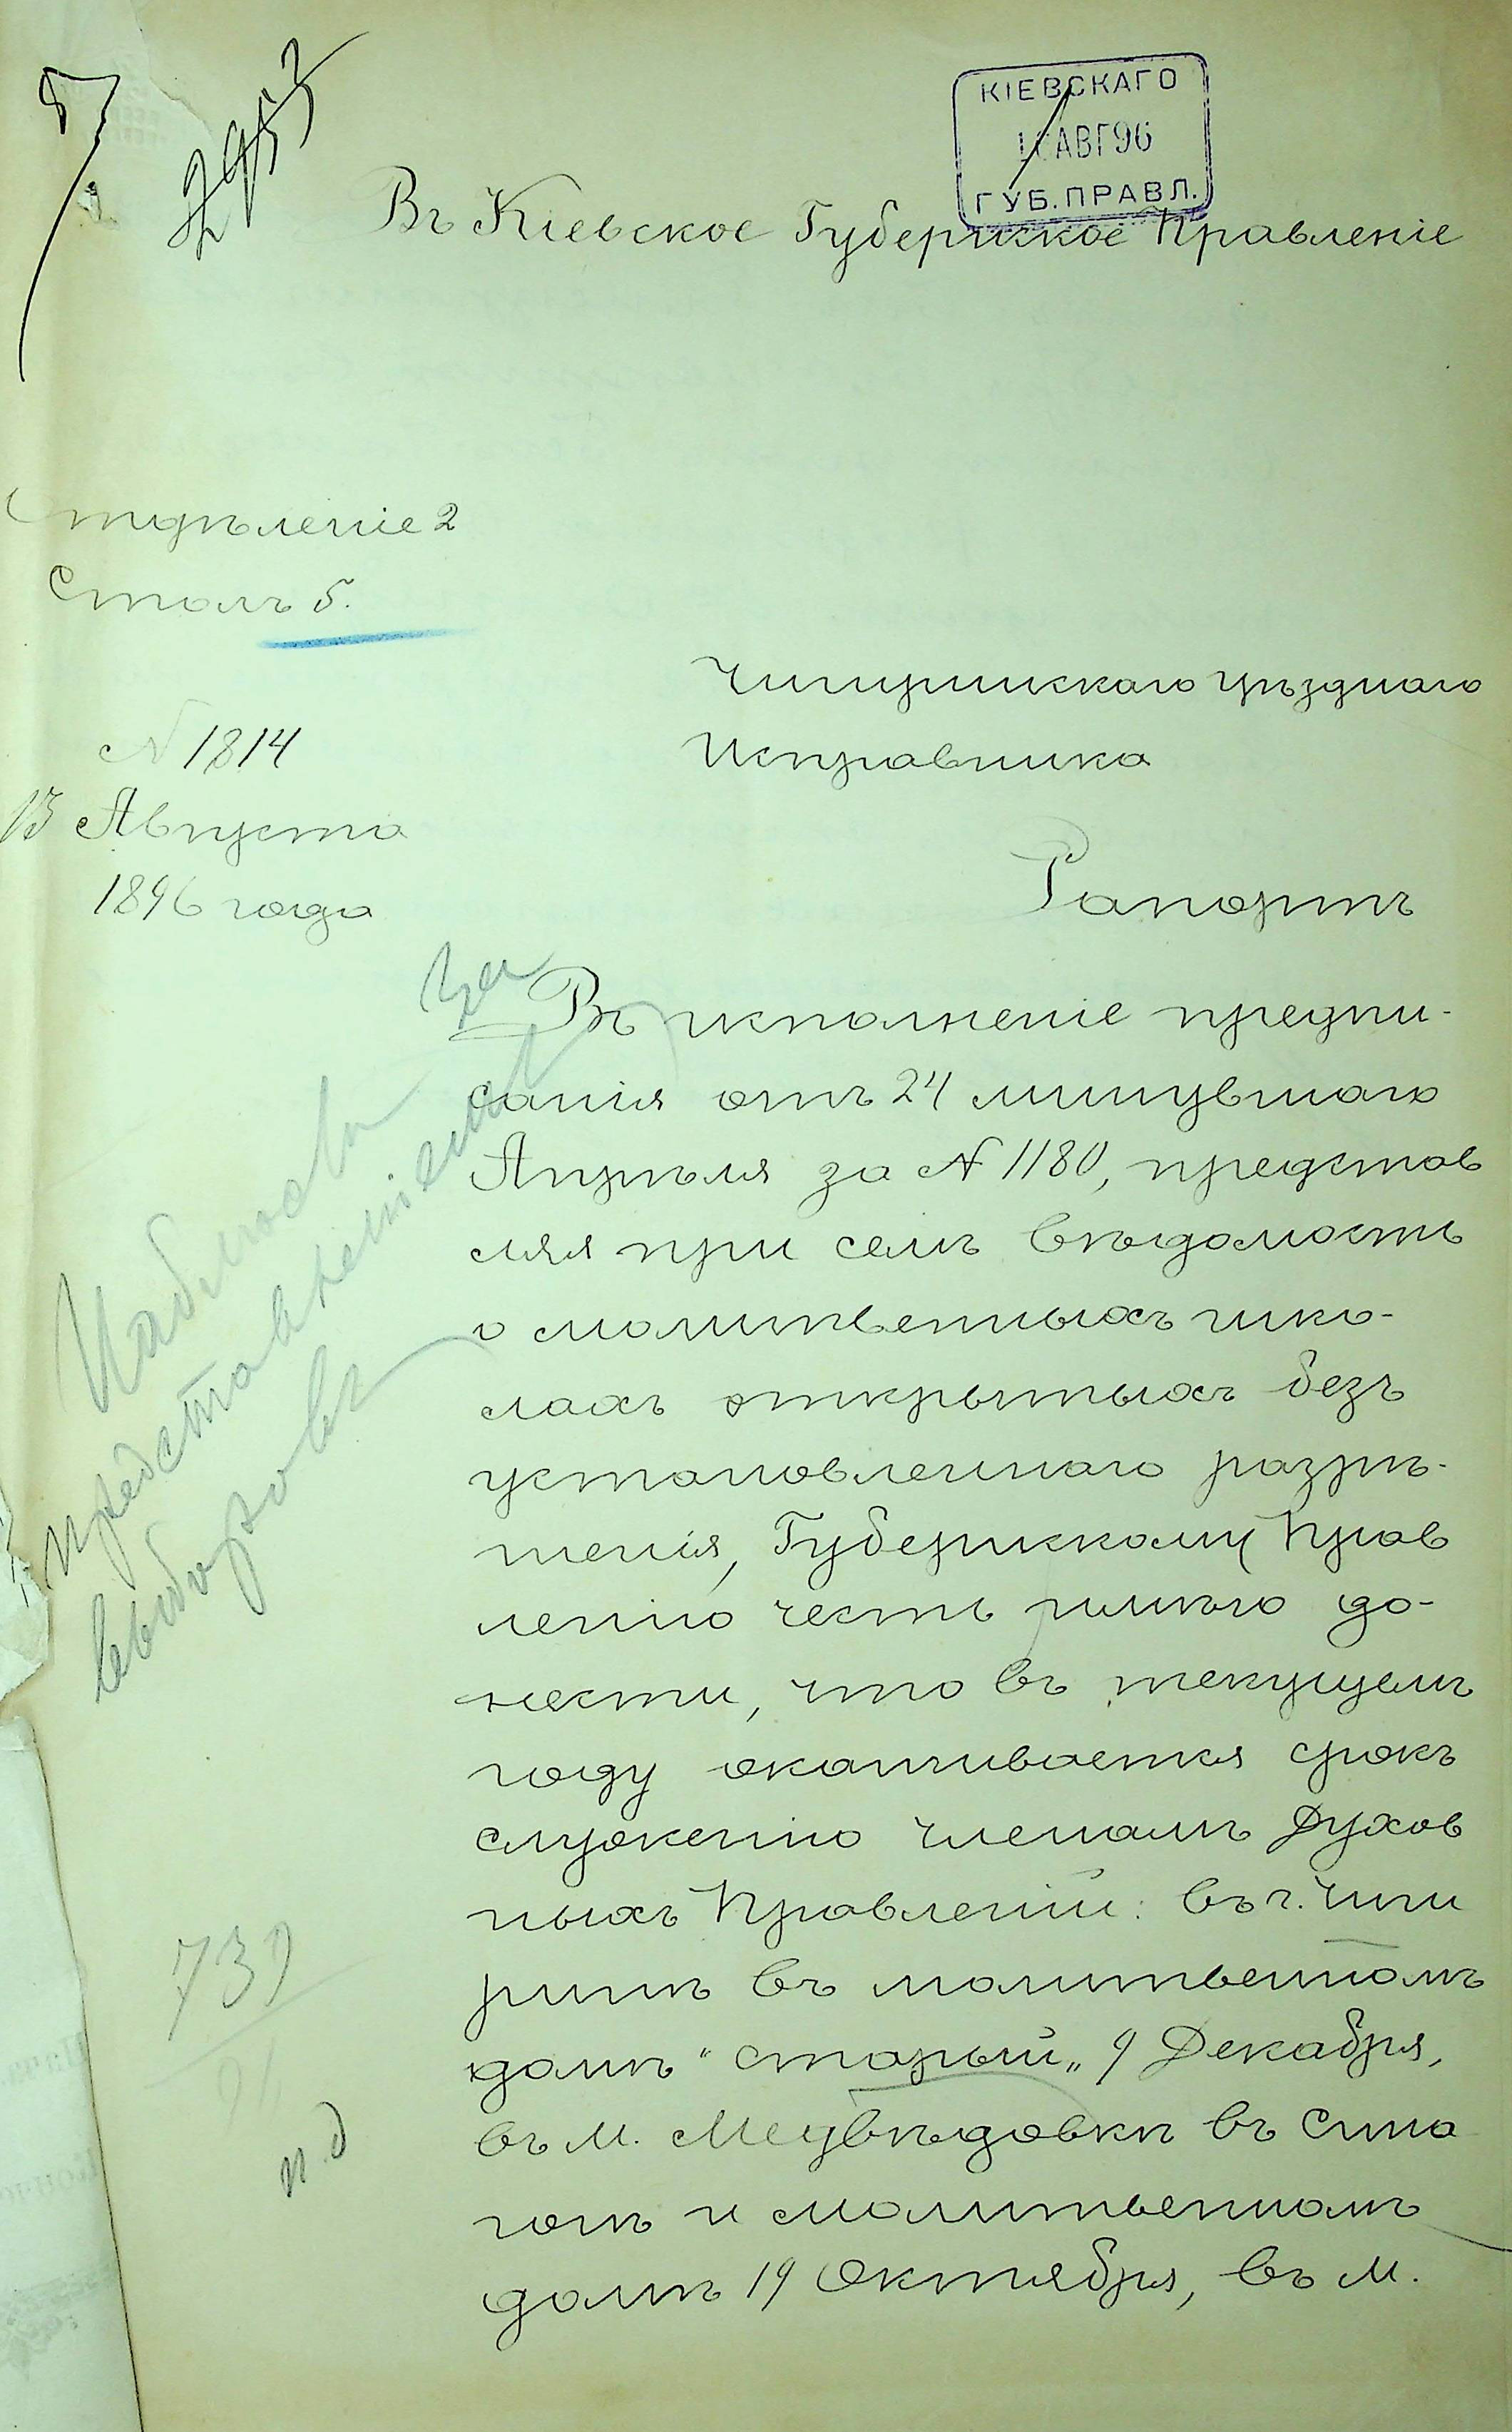 8
2953
КІЕВСКАГО
АВГ96
ГУБ.ПРАВЛ.
Въ Кіевское Губернское Правленіе
Отдѣленіе 2
Столъ 5.
Чигиринскаго уѣзднаго
Исправника
N 1814
13 Августа
1896 года
Рапортъ
Въ исполненіе предпи-
санія отъ 24 минувшаго
Апрѣля за N 1180, представ
ляя при семъ вѣдомость
о молитвенныхъ шко-
лахъ открытыхъ безъ
установленнаго разрѣ-
шенія, Губернскому Прав
ленію честь имѣю до-
нести, что въ текущемъ
году оканчивается срокъ
служенію членамъ Духов
ныхъ Правленій: въ г. Чиги
ринѣ въ молитвенномъ
домѣ "старый" 9 Декабря,
въ м. Медвѣдовкѣ въ Сина
гогѣ и молитвенномъ
домѣ 19 Октября, въ м.
за
представленіемъ
выборовъ
739
п.д